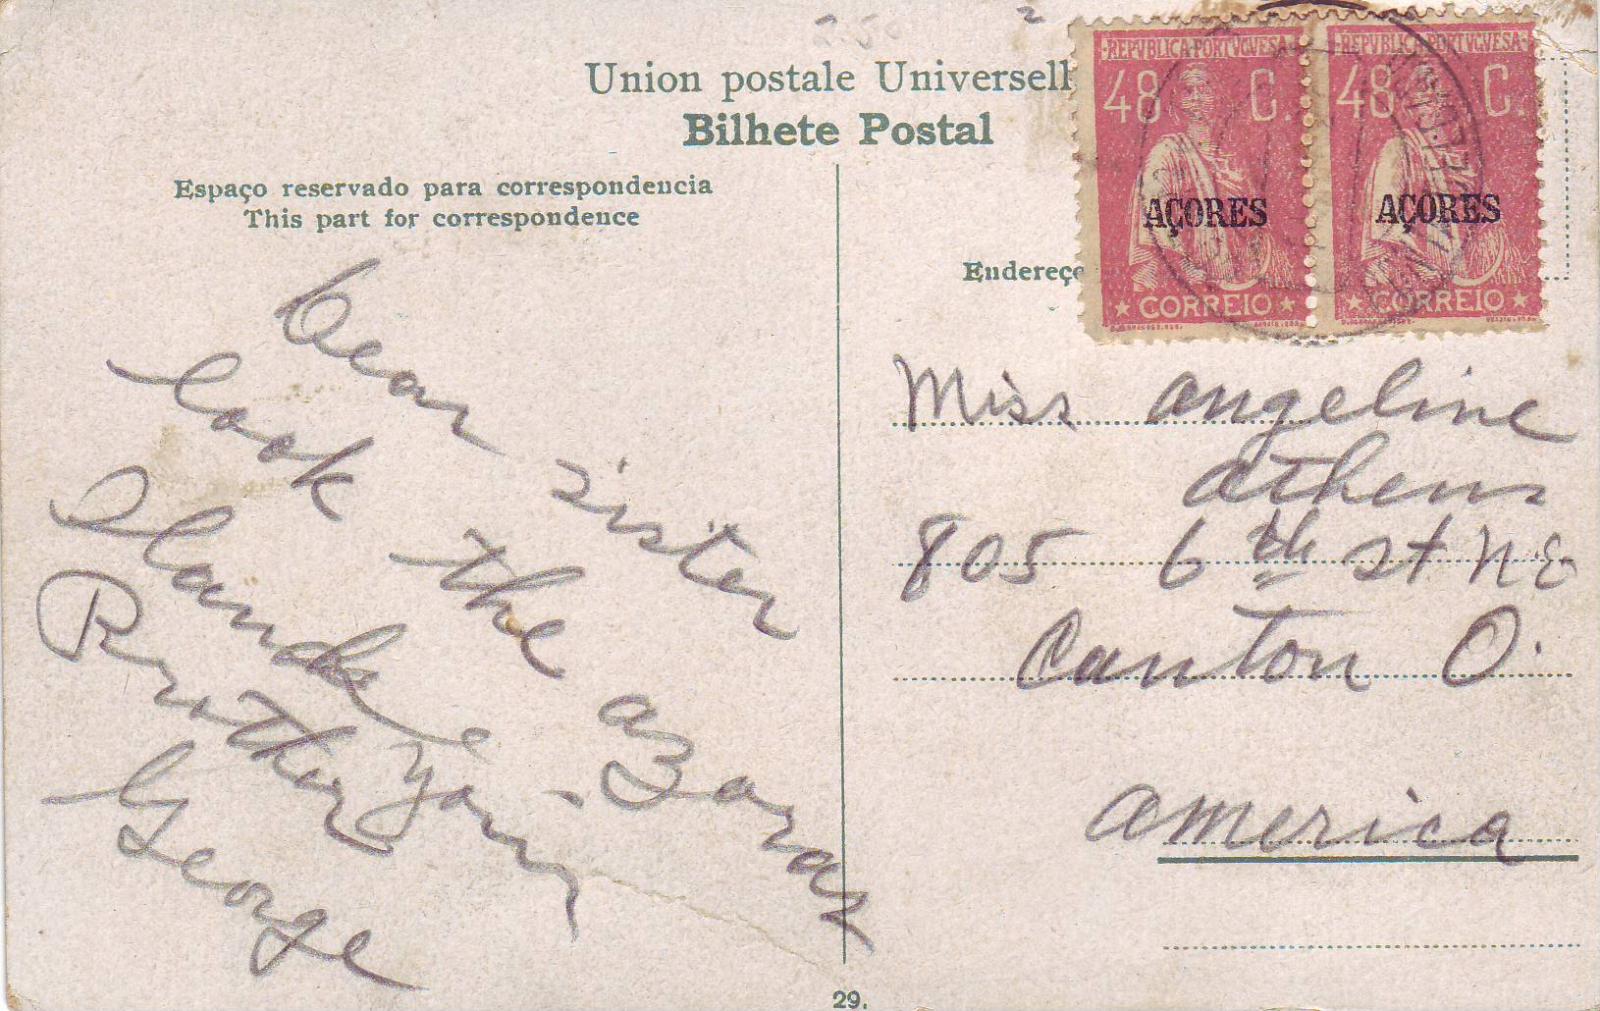 2
Union postale Universell
Bilhete Postal
Espaço reservado para correspondencia
This part for correspondence
Endereço
REPVBLICA PORTVGVESA
48 C.
AÇORES
CORREIO
REPVBLICA PORTVGVESA
48 C.
AÇORES
CORREIO
Dear sister
look the aZoraz
Ilands
Brother
George
Miss angeline
athens
805 6th st NE
Canton O.
america
29.